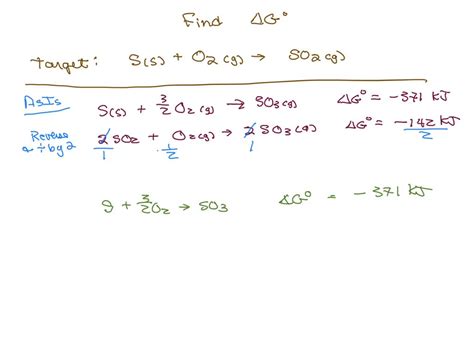 Find ΔG°
Target: S(s) + O2(g) → SO2(g)
AsIs S(s) + 3/2 O2(g) → SO3(g) ΔG° = -371 KJ
Reverse & ÷ by 2 2SO2 + O2(g) → 2SO3(g) ΔG° = -142 KJ
1 1/2 1 2
S + 3/2 O2 → SO3 ΔG° = -371 KJ